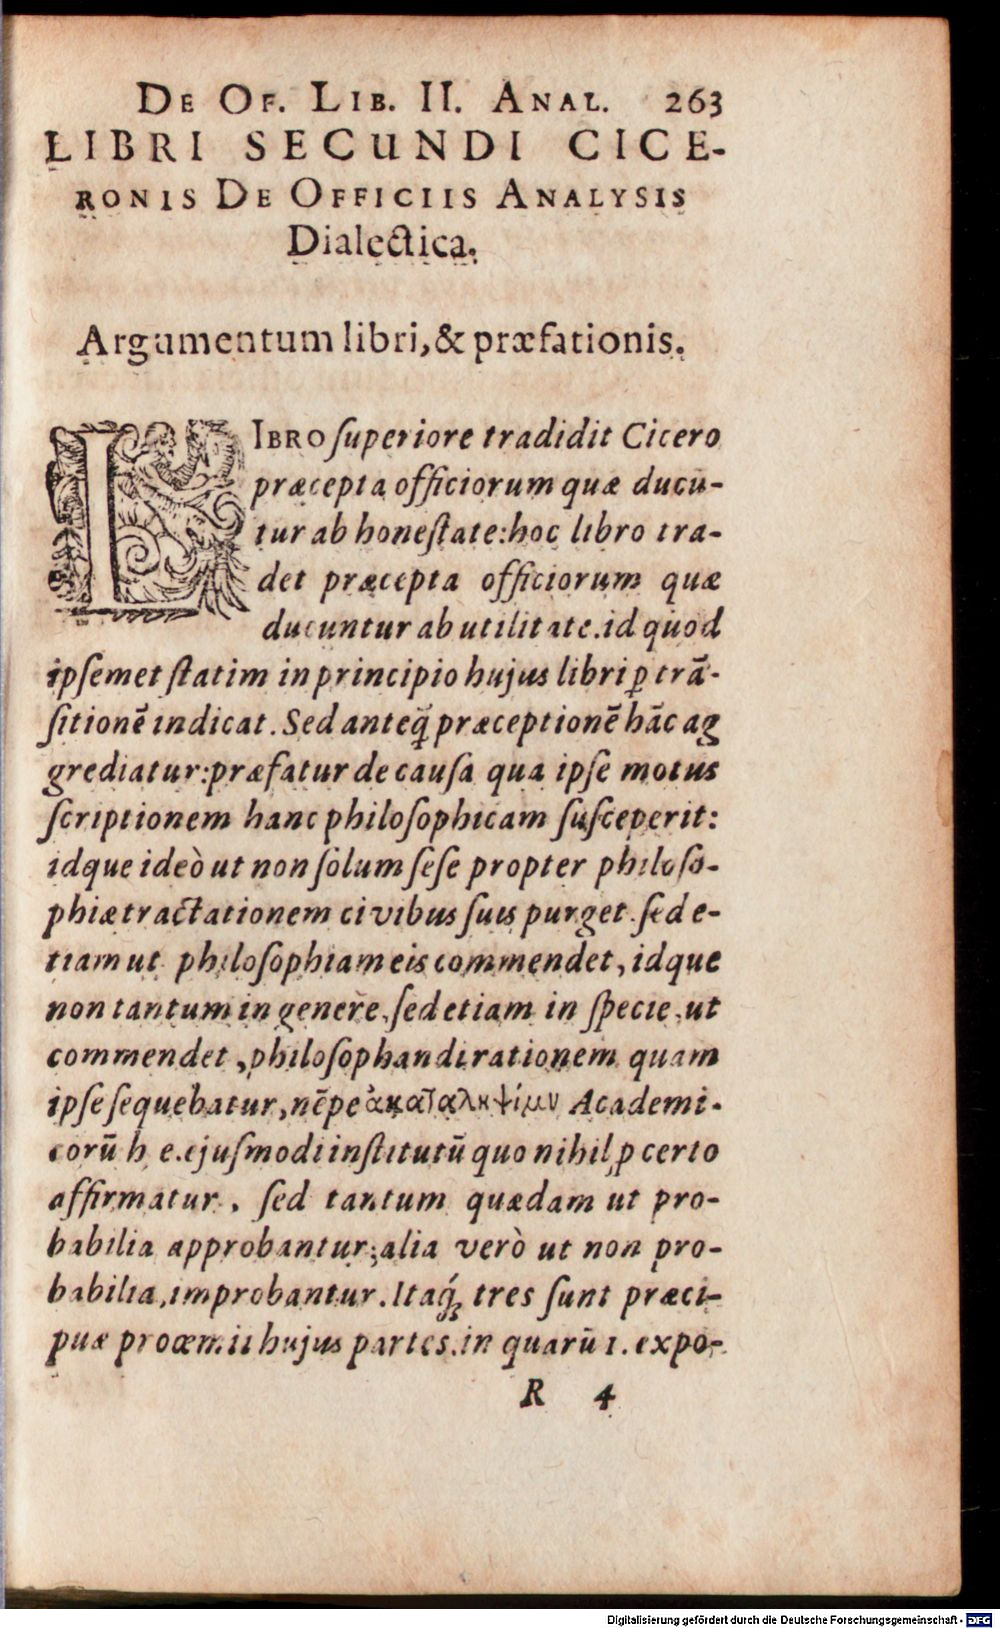 DE OF. LIB. II. ANAL. 263
LIBRI SECUNDI CICE-
RONIS DE OFFICIIS ANALYSIS
Dialectica.
Argumentum libri, & præfationis.
LIBRO ſuperiore tradidit Cicero
præcepta officiorum quæ ducū-
tur ab honeſtate: hoc libro tra-
det præcepta officiorum quæ
ducuntur ab utilitate. id quod
ipſemet ſtatim in principio hujus libri ꝑ trā-
ſitionē indicat. Sed anteq̃ præceptionē hāc ag
grediatur: præfatur de cauſa qua ipſe motus
ſcriptionem hanc philoſophicam ſuſceperit:
idque ideò ut non ſolum ſeſe propter philoſo-
phiæ tractationem civibus ſuis purget. ſed e-
tiam ut philoſophiam eis commendet, idque
non tantum in genere, ſed etiam in ſpecie, ut
commendet, philoſophandi rationem quam
ipſe ſequebatur, nēpe ἀκαταληψίμν Academi-
corū h e. ejuſmodi inſtitutū quo nihil ꝓ certo
affirmatur, ſed tantum quædam ut pro-
babilia approbantur; alia verò ut non pro-
babilia, improbantur. Itaq́ꝫ tres ſunt præci-
puæ proœmii hujus partes. in quarū 1. expo-
R 4
Digitalisierung gefördert durch die Deutsche Forschungsgemeinschaft - DFG